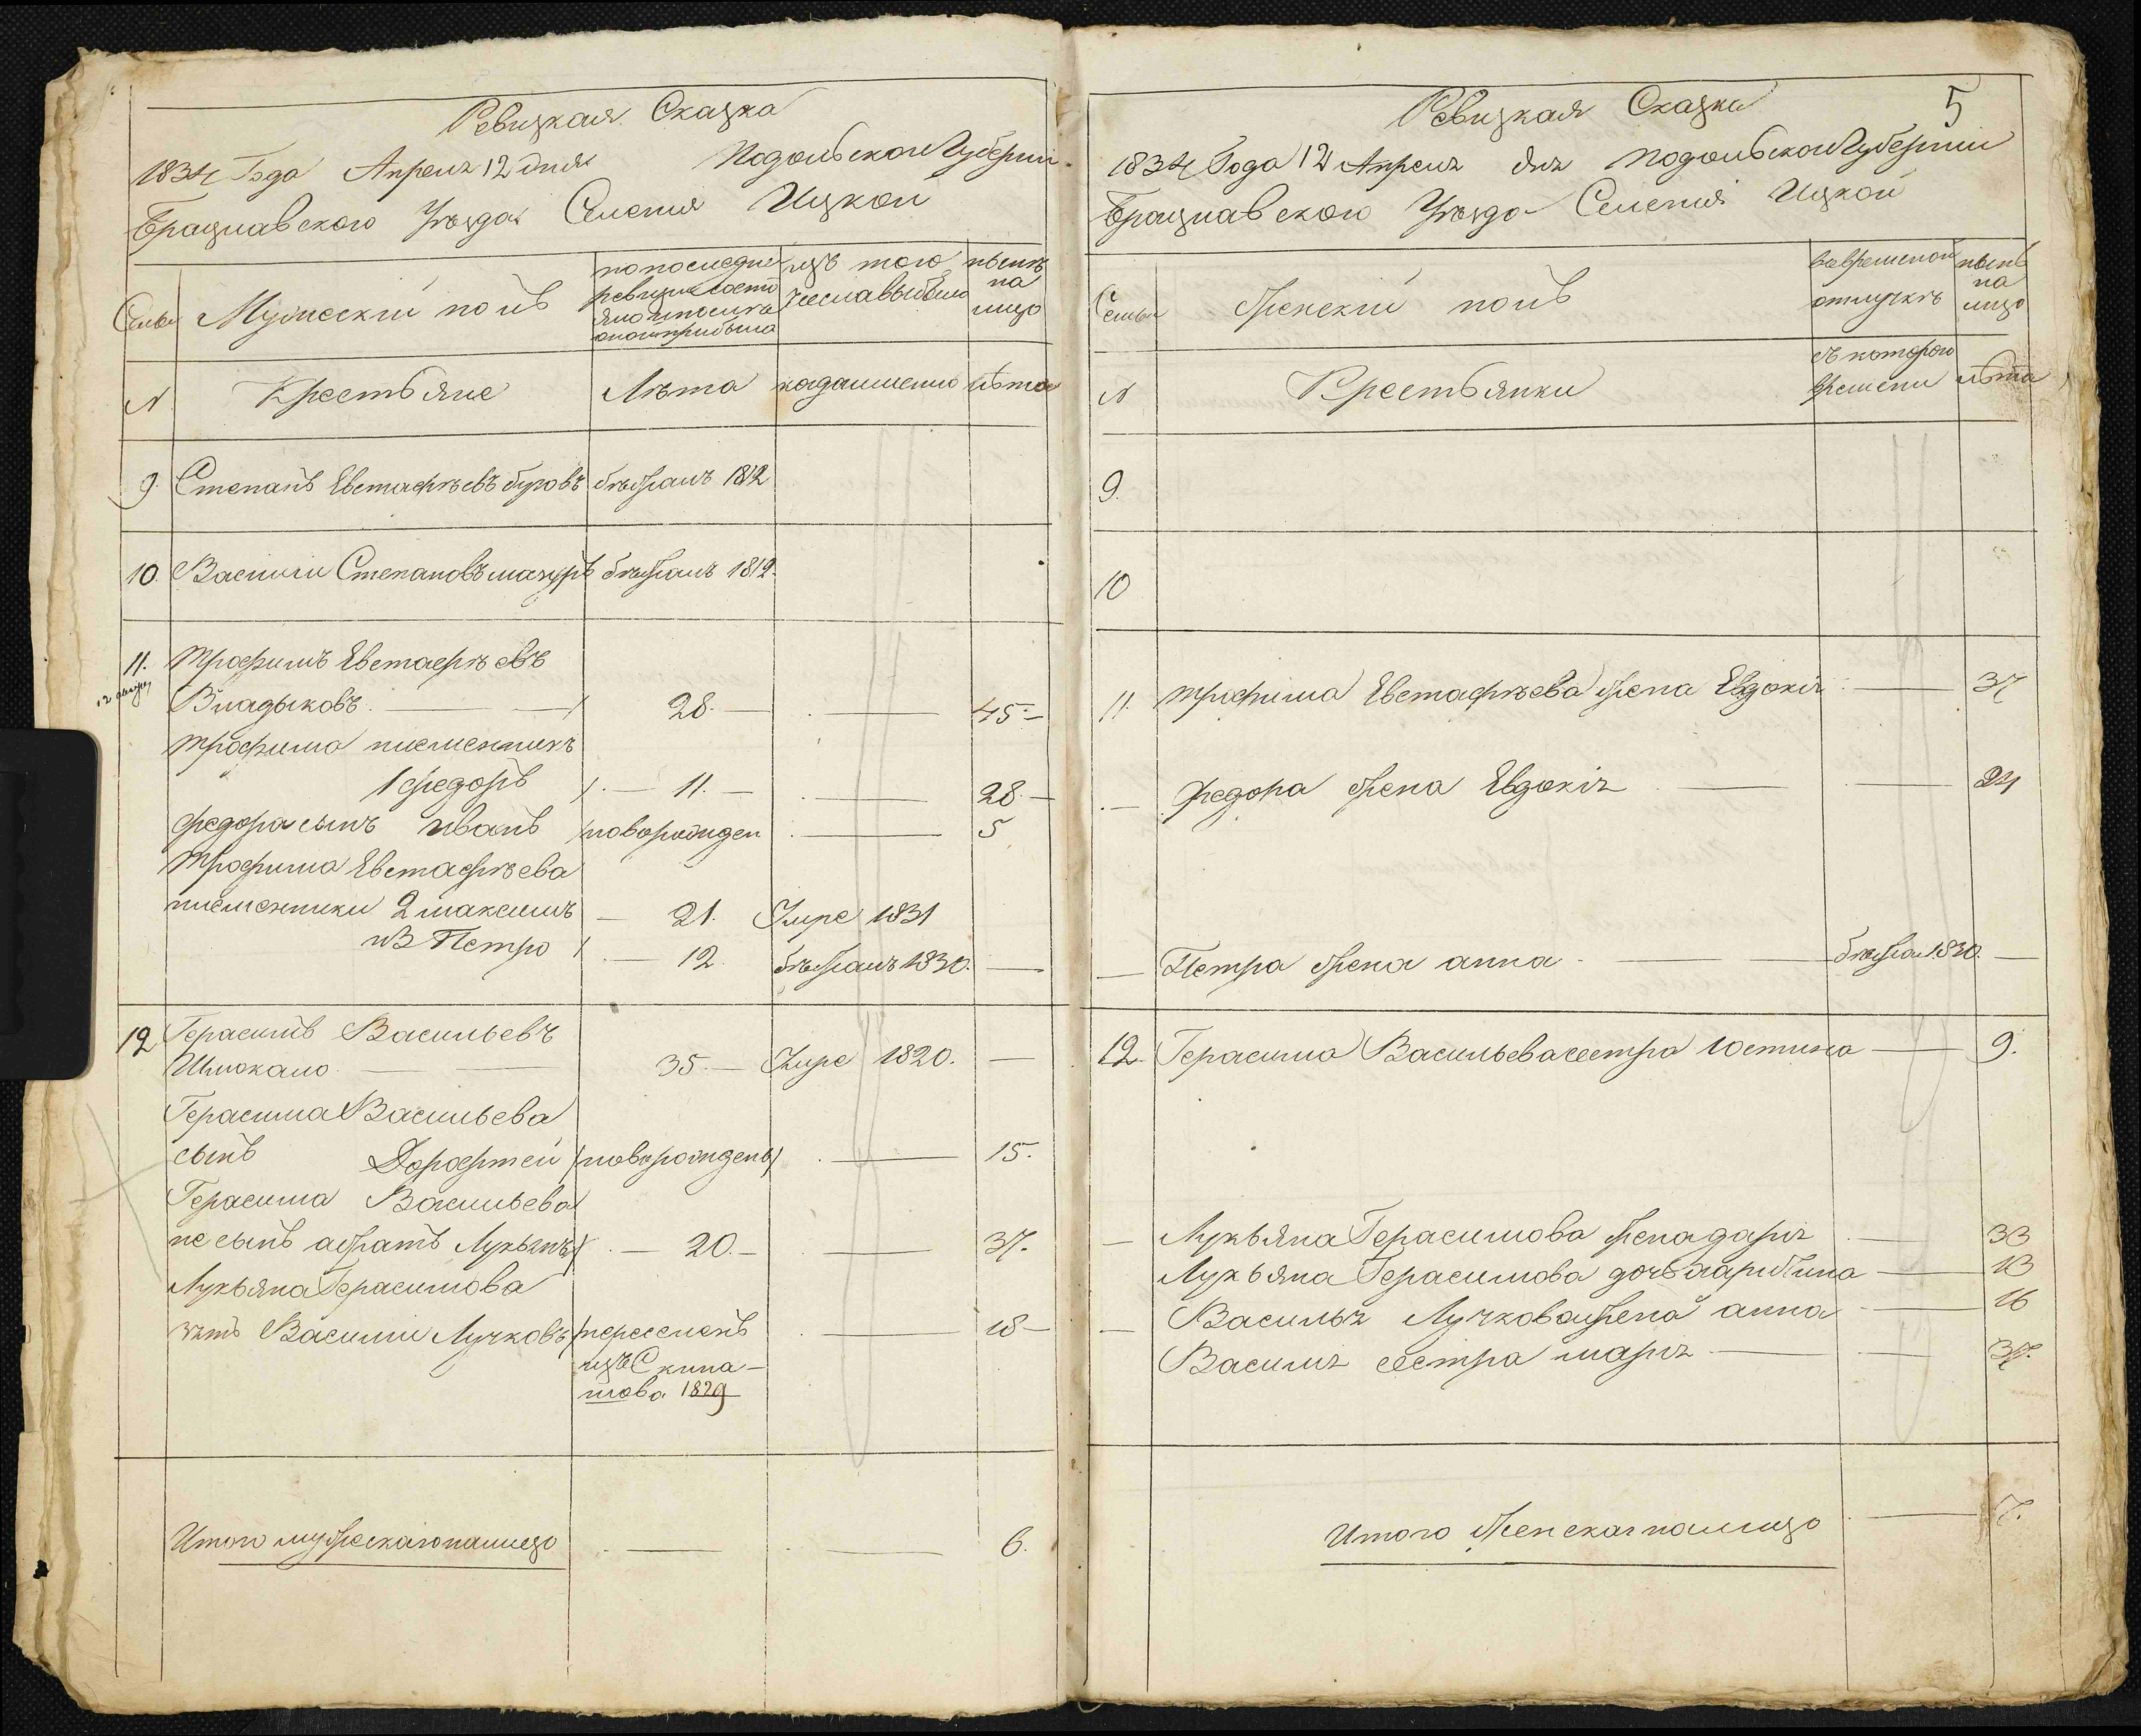 Ревизкая Сказка
1834 Года Апреля 12 дня Подольской Губернии
Брацлавского Уезда Селения Ицкой
Семьи
Мужеский полъ
по последней
ревизии состояло
и после
оной прибыло
изъ того
числа выбыло
ныне
на
лицо
N
Крестьяне
Лѣта
когда именно
лѣта
9. Степанъ Евстафѣевъ буровъ бѣжалъ 1812
10. Василии Степановъ мазуръ бѣжалъ 1812.
11. Трофимъ Евстафѣевъ
Владыковъ. 28. 45
Трофима племенникъ
1 Федоръ 11. 28.
Федора сынъ иванъ новорожден 5
Трофима Евстафѣева
племенники 2 максимъ 21. Умре 1831
и 3 Петро 12. бѣжалъ 1830.
12 Герасимъ Васильевъ
35. Умре 1820.
Герасима Васильева
сынъ Дорофтей новорожденъ 15.
Герасима Васильева
не сынъ а братъ Лукьянъ 20. 37.
Лукьяна Герасимова
зять Василии Лучковъ переселенъ 18
изъ
1829
Итого мужескаго налицо 6.
5
Ревизкая Сказка
1834 Года 12 Апреля дня Подольской Губернии
Брацлавского Уезда Селения Ицкой
Семьи
Женскии полъ
во временой
отлучкѣ
ныне
на
лицо
N
Крестьянки
съ которого
времени
лѣта
9.
10
11. Трофима Евстафѣева жена Евдокия 37
Федора жена Евдокия 24
Петра жена анна бѣжал 1830.
12. Герасима Васильева сестра Юстина 9.
Лукьяна Герасимова жена дария 33
Лукьяна Герасимова дочь 13
Василья Лучкова жена анна 16
Василия сестра мария
Итого Женская налицо 7.